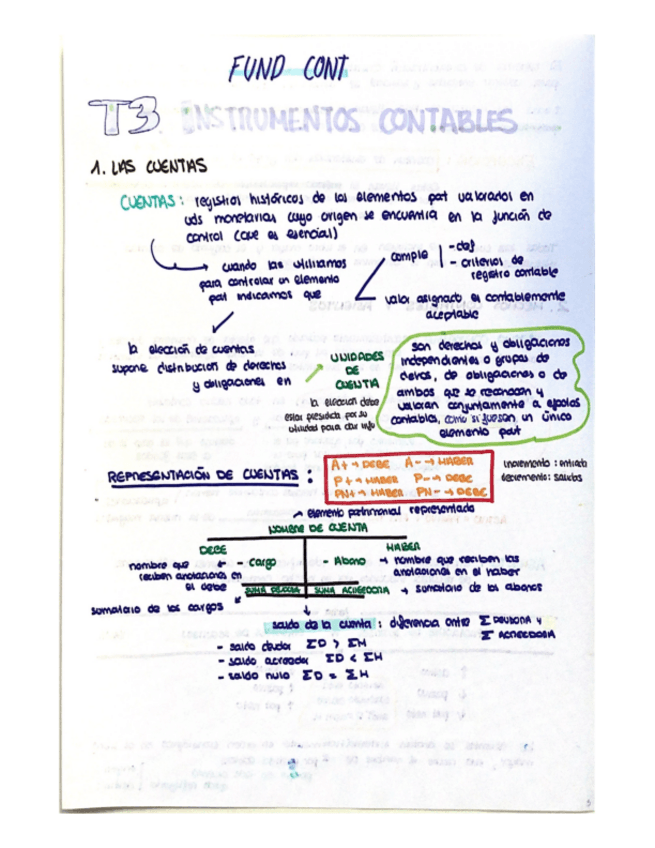 FUND CONT
T3. INSTRUMENTOS CONTABLES
1. LAS CUENTAS
CUENTAS: registros históricos de los elementos pat valorados en
uds monetarias cuyo origen se encuentra en la función de
control (que es esencial)
cuando las utilizamos
para controlar un elemento
pat indicamos que
cumple
- def
- criterios de
registro contable
valor asignado es contablemente
aceptable
la elección de cuentas
supone distribución de derechos
y obligaciones en
UNIDADES
DE
CUENTIA
la elección debe
estar presidida por su
utilidad para dar info
son derechos y obligaciones
independientes o grupos de
dchos, de obligaciones o de
ambos que se reconocen y
valoran conjuntamente a efectos
contables, como si fuesen un único
elemento pat
REPRESENTACIÓN DE CUENTAS:
A+ → DEBE A- → HABER
P+ → HABER P- → DEBE
PN+ → HABER PN- → DEBE
incremento: entrada
decremento: salidas
elemento patrimonial representado
NOMBRE DE CUENTA
DEBE
HABER
nombre que
reciben anotaciones en
el debe
← - Cargo
- Abono → nombre que reciben las
anotaciones en el haber
SUMA DEUDORA
SUMA ACREEDORA → sumatorio de los abonos
sumatorio de los cargos
saldo de la cuenta: diferencia entre Σ DEUDORA y
Σ ACREEDORA
- saldo deudor ΣD > ΣH
- saldo acreedor ΣD < ΣH
- saldo nulo ΣD = ΣH